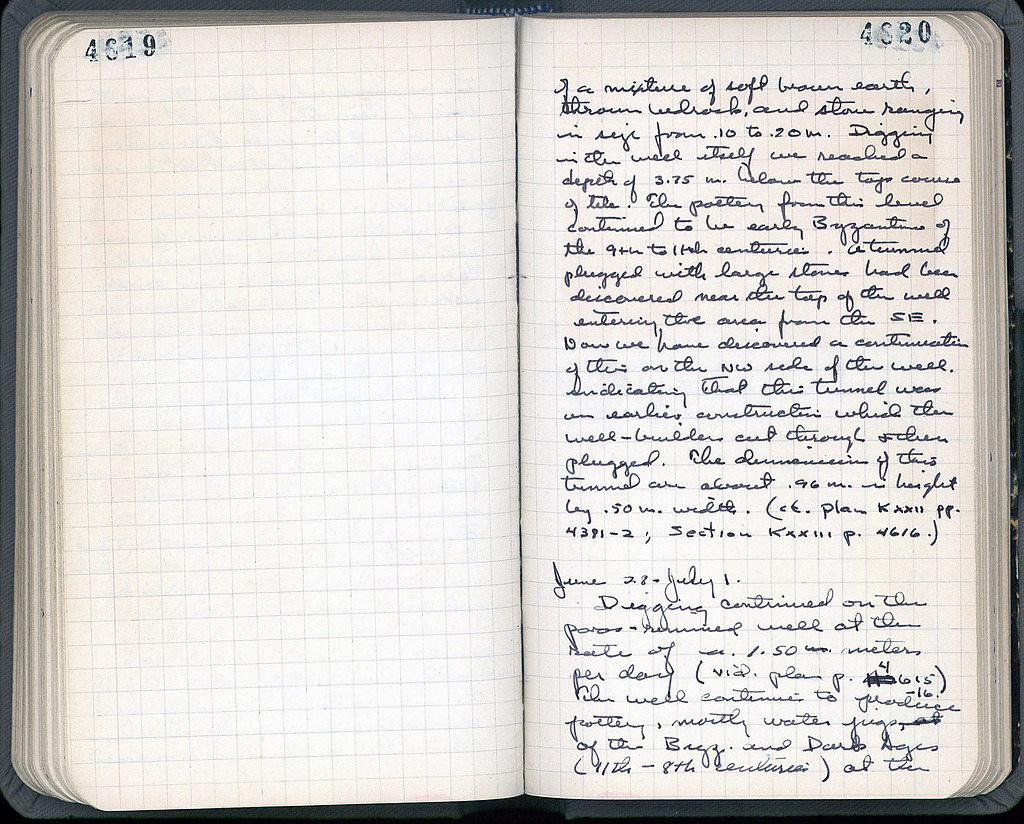 4619
4620
of a mixture of soft brown earth,
thrown bedrock, and stone ranging
in size from .10 to .20 m. Digging
in the well itself we reached a
depth of 3.75 m. below the top course
of tile. The pottery from this level
continued to be early Byzantine of
the 9th to 11th centuries. A tunnel
plugged with large stones had been
discovered near the top of the well
entering the area from the SE.
Now we have discovered a continuation
of this on the NW side of the well.
indicating that this tunnel was
an earlier construction which the
well-builders cut through & then
plugged. The dimensions of this
tunnel are about .96 m. in height
by .50 m. width. (cf. plan KXXII pp.
4391-2, Section KXXIII p. 4616.)
June 28-July 1.
Digging continued on the
poros-rimmed well at the
rate of ca. 1.50 m. meters
per day (vid. plan p. 4615)
-16.
The well continues to produce
pottery, mostly water jugs,
of the Byz. and Dark Ages
(11th - 8th centuries) at the